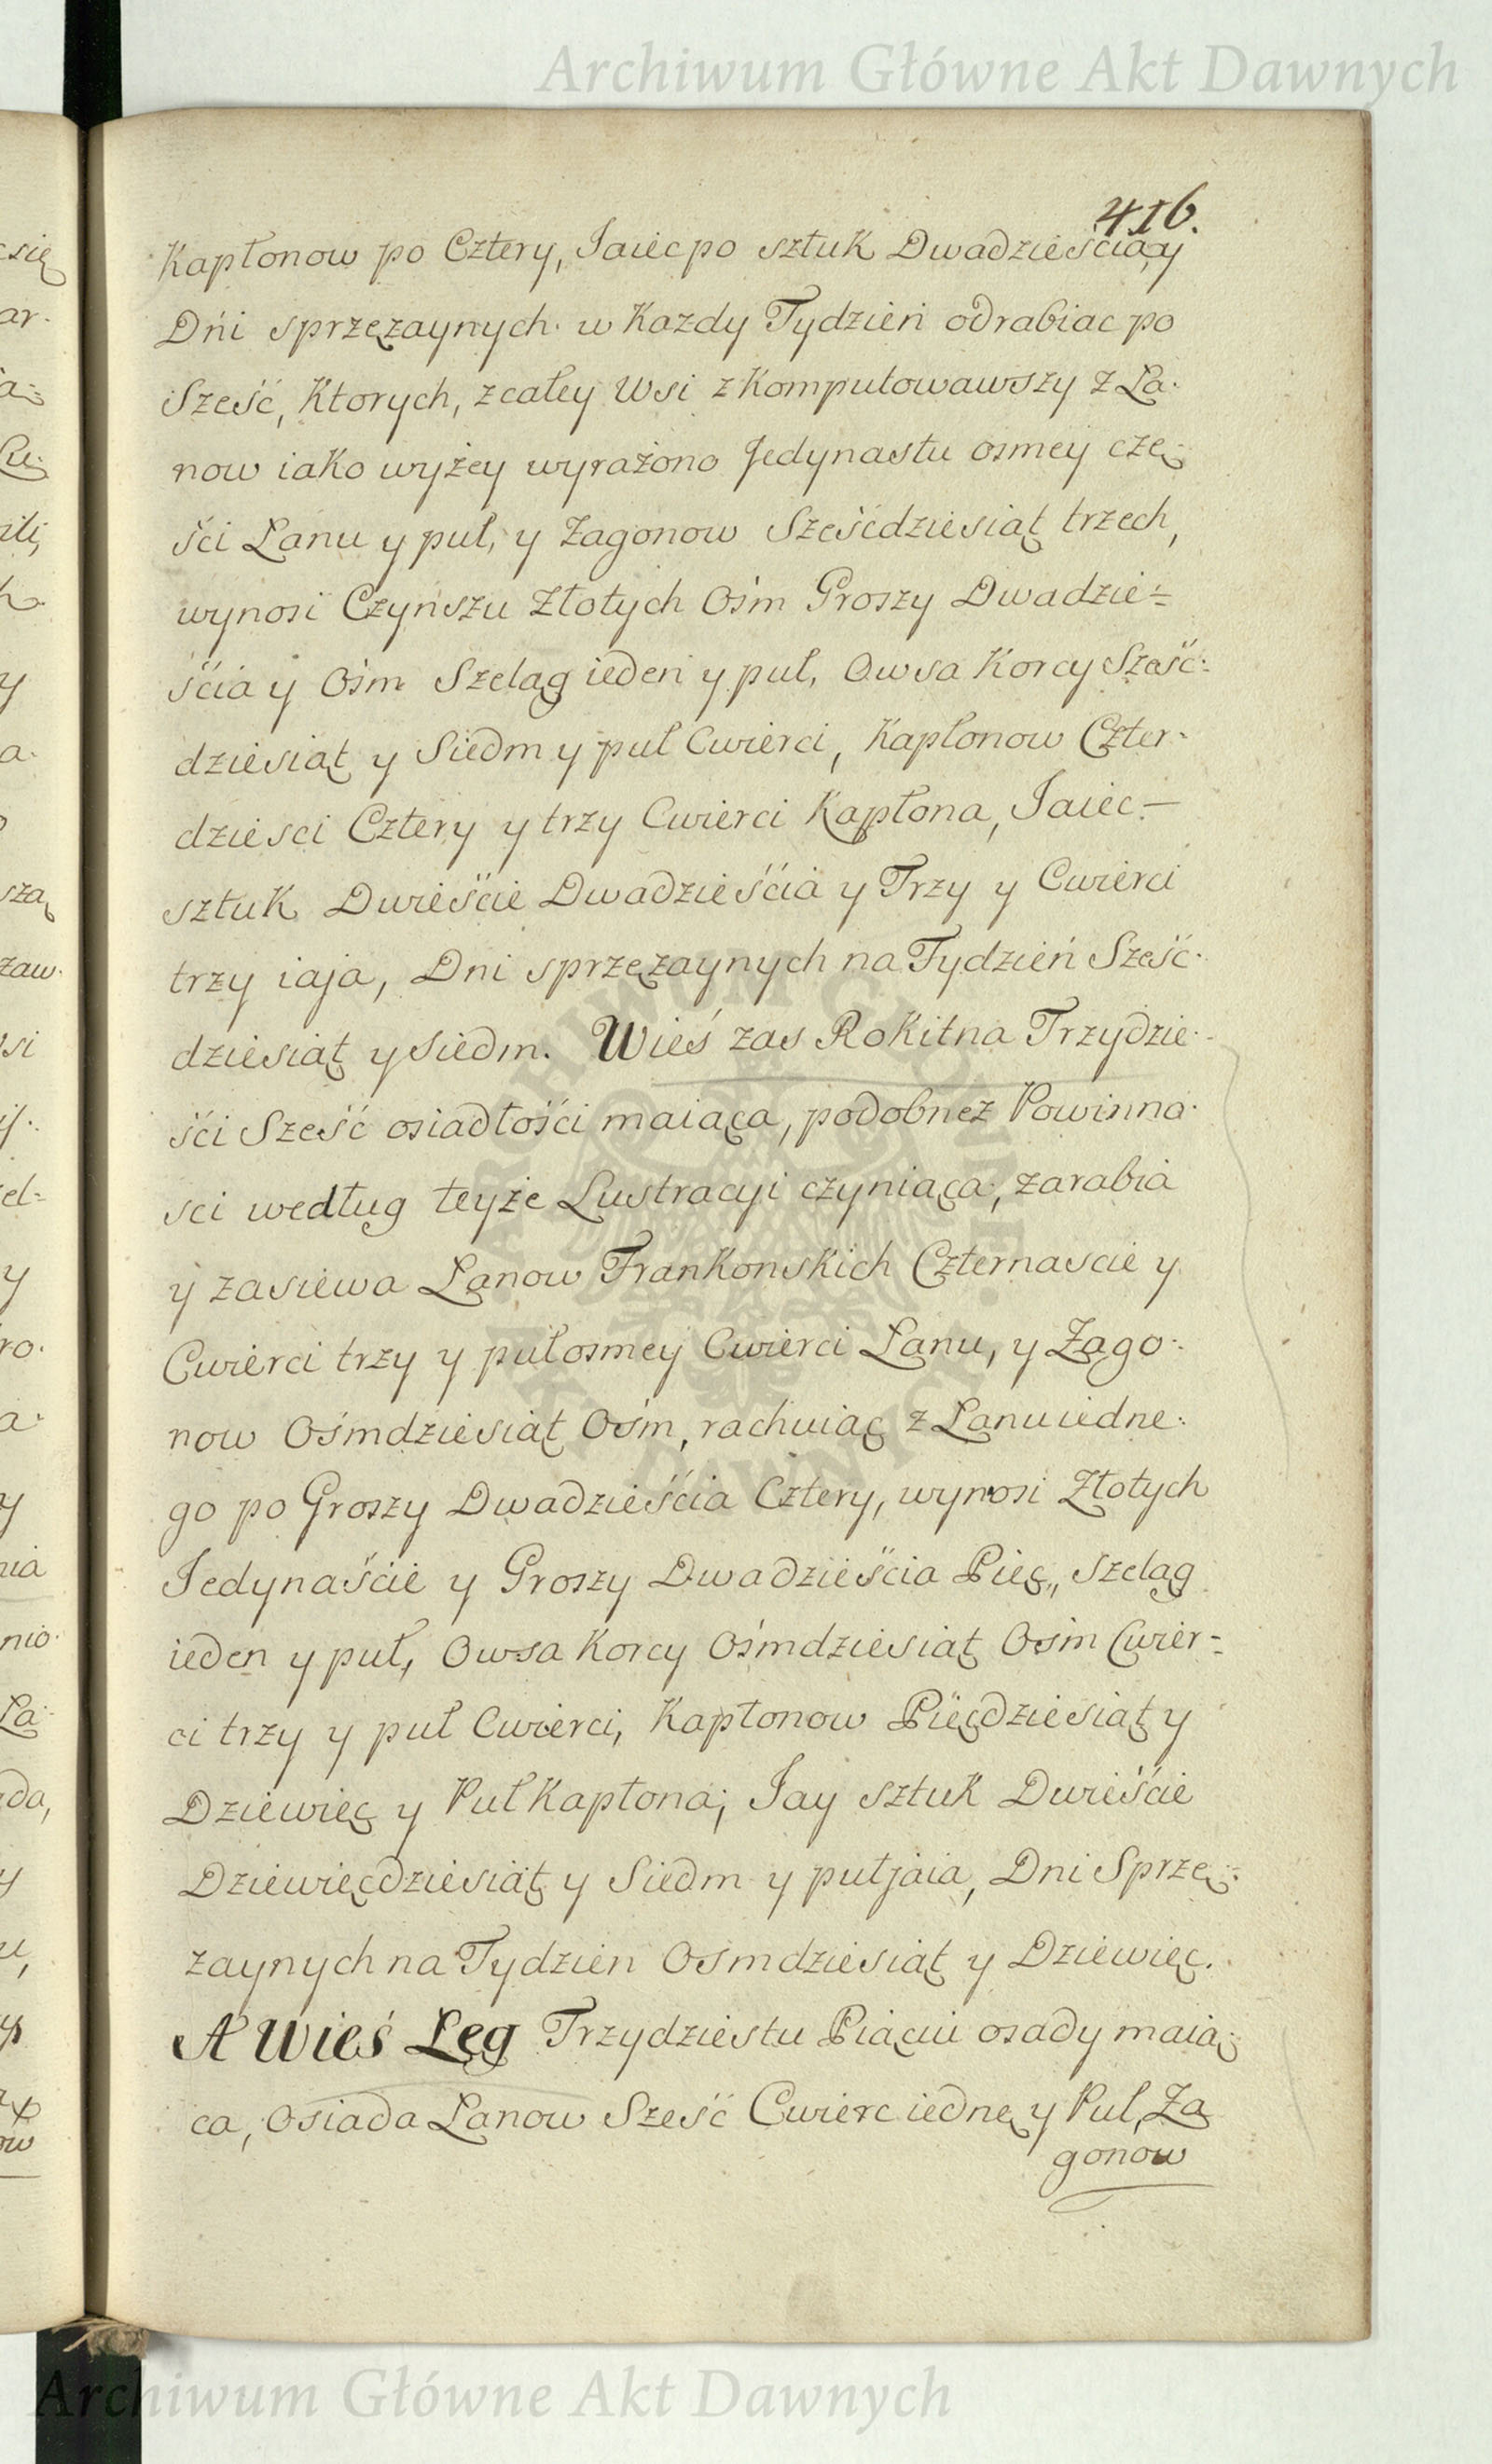 Archiwum Główne Akt Dawnych
416.
Kapłonow po Cztery, Jaiec po sztuk Dwadzieścia, y
Dńi sprzęzaynych w Kazdy Tydzień odrabiac po
Sześć, Ktorych, z całey Wsi zKomputowawszy z Ła:
now iako wyżey wyrażono Jedynastu osmey czę:
ści Łanu y puł, y Zagonow Sześćdziesiąt trzech,
wynosi Czynszu Złotych Ośm Groszy Dwadzie=
ścia y Ośm Szeląg ieden y puł, Owsa Korcy Sześć:
dziesiąt y Siedm y puł Cwierci, Kapłonow Czter:
dziesci Cztery y trzy Cwierci Kapłona, Jaiec —
sztuk Dwieście Dwadzieścia y Trzy y Cwierci
trzy iaja, Dni sprzęzaynych na Tydzień Sześć:
dziesiąt y Siedm. Wieś zas Rokitna Trzydzie:
ści Sześć osiadłości maiąca, podobnez Powinno:
sci według teyże Lustracyi czyniąca, zarabia
y zasiewa Łanow Frankonskich Czternascie y
Cwierci trzy y puł osmey Cwierci Łanu, y Zago:
now Ośmdziesiąt Ośm, rachuiąc z Łanu iedne:
go po Groszy Dwadzieścia Cztery, wynosi Złotych
Jedynaście y Groszy Dwadzieścia Pięc, Szeląg
ieden y puł, Owsa Korcy Ośmdziesiąt Ośm Cwier=
ci trzy y puł Cwierci, Kapłonow Pięcdziesiąt y
Dziewięc y Puł Kapłona, Jay sztuk Dwieście
Dziewięcdziesiąt y Siedm y puł jaia, Dni Sprzę:
zaynych na Tydzien Osmdziesiąt y Dziewięc.
A Wieś Łęg Trzydziestu Piąciu osady maią:
ca, Osiada Łanow Sześć Cwierc iednę y Puł, Za
gonow
Archiwum Główne Akt Dawnych